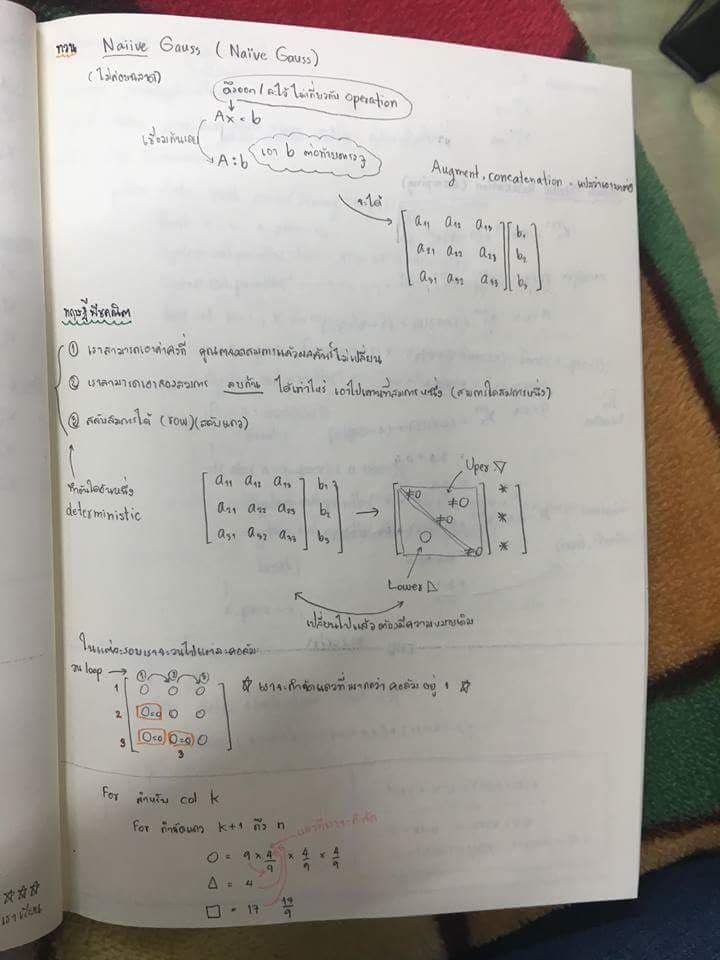 ทวน Naiive Gauss ( Naïve Gauss)
(ไม่ค่อยฉลาด)
ดึงออก / อะไร ไม่เกี่ยวกับ operation
Ax = b
เชื่อมกันเลย
A : b เอา b ต่อท้าย
Augment, concatenation - แปลว่าเอามาต่อ
จะได้
a11 a12 a13 b1
a21 a22 a23 b2
a31 a32 a33 b3
ทฤษฎีพีชคณิต
① เราสามารถเอาค่าคงที่ คูณตลอดสมการแล้วผลลัพธ์ไม่เปลี่ยน
② เราสามารถเอาสองสมการ ลบกัน ได้เท่าไหร่ เอาไปแทนที่สมการหนึ่ง (สมการใดสมการหนึ่ง)
③ สลับสมการได้ (row) (สลับแถว)
ทำอันใดอันหนึ่ง
deterministic
Uper ▽
a11 a12 a13 b1
a21 a22 a23 b2
a31 a32 a33 b3
→
≠0 ≠0 *
≠0 *
0 ≠0 *
Lower
เปลี่ยนไปแล้ว ต้องมีความหมายเดิม
ในแต่ละรอบเราจะวนไปแต่ละคอลัมน์
วน loop → ① ② ③
1 0 0 0
2 0=0 0 0
3 0=0 0=0 0
3
☆ เราจะกำจัดแถวที่มากกว่า คอลัมน์ อยู่ 1 ☆
For สำหรับ col k
For กำจัดแถว k+1 ถึง n
○ = 9 × 4/9 × 4/9 × 4/9
△ = 4
□ = 17 17/9
☆☆☆